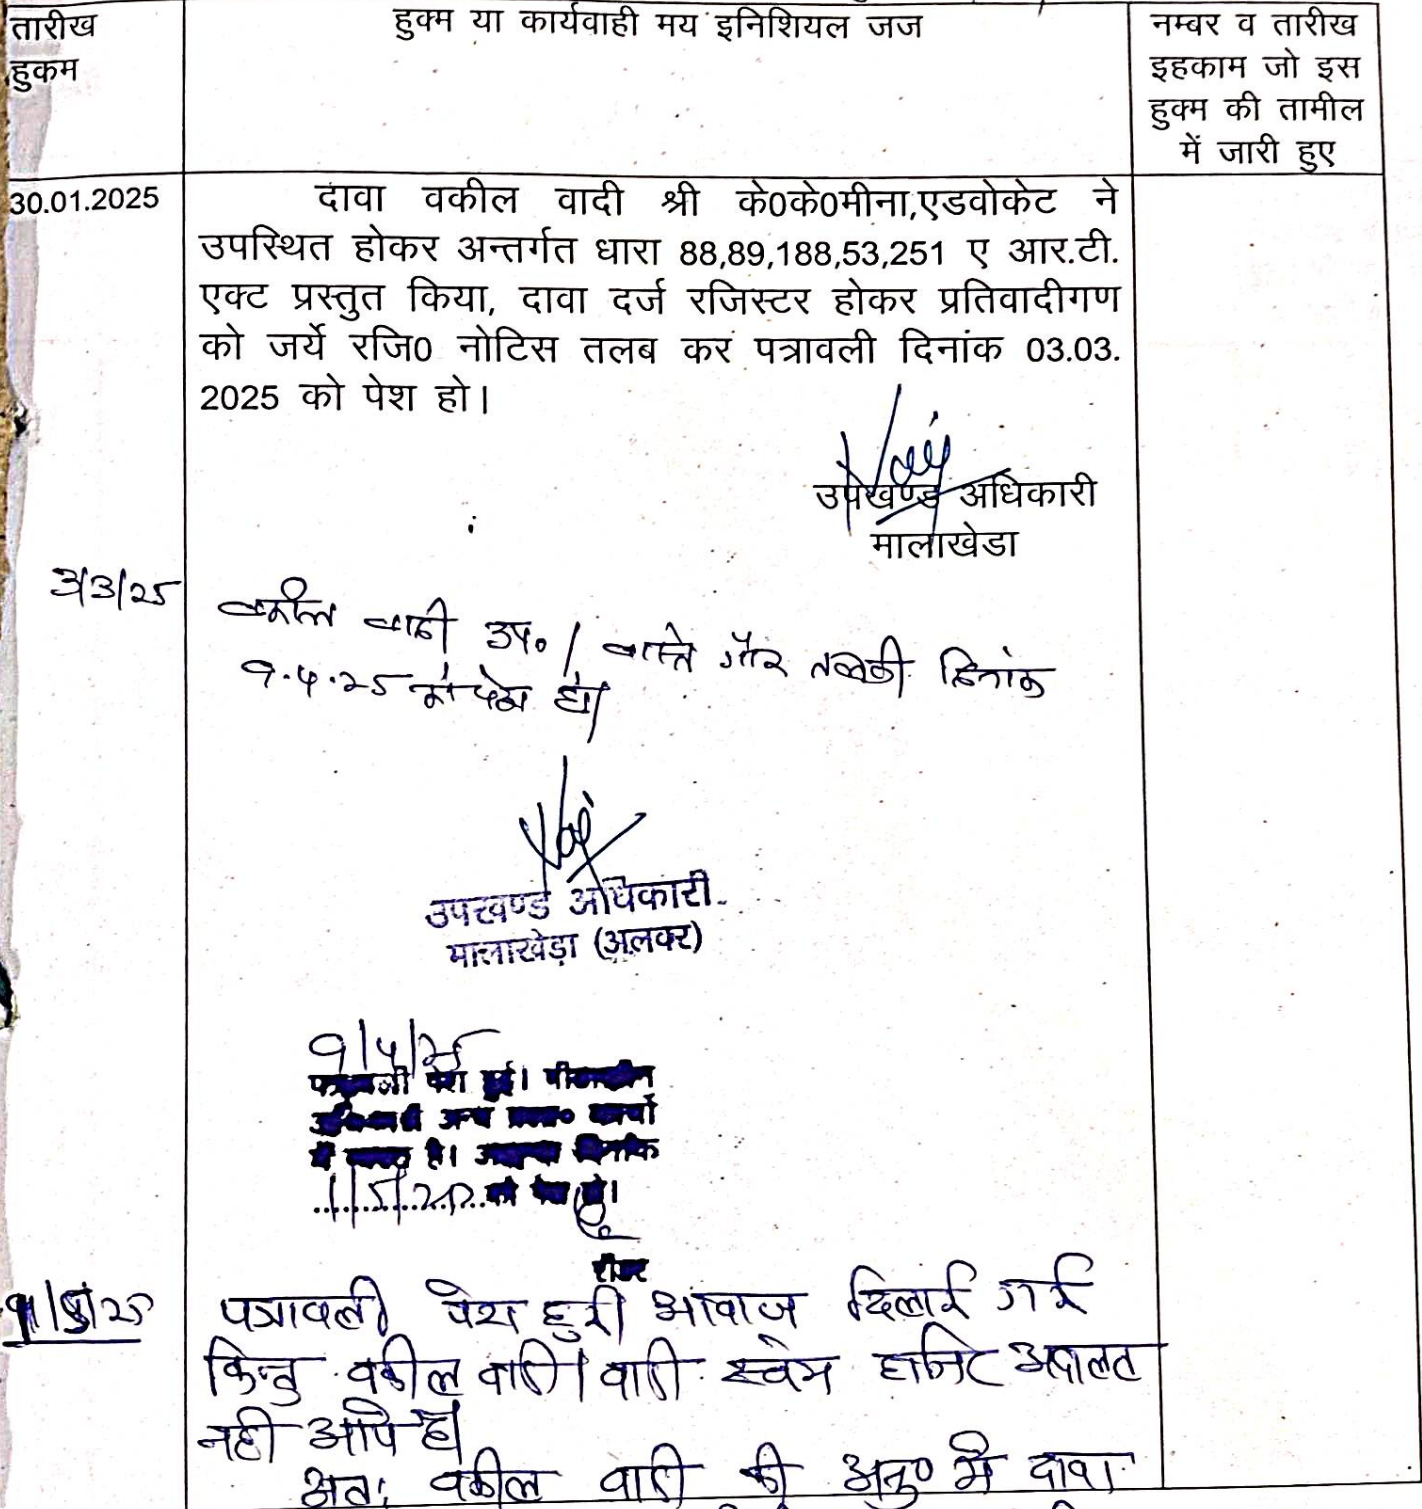 तारीख
हुकम
हुक्म या कार्यवाही मय इनिशियल जज
नम्बर व तारीख
इहकाम जो इस
हुक्म की तामील
में जारी हुए
30.01.2025
दावा वकील वादी श्री के0के0मीना,एडवोकेट ने
उपस्थित होकर अन्तर्गत धारा 88,89,188,53,251 ए आर.टी.
एक्ट प्रस्तुत किया, दावा दर्ज रजिस्टर होकर प्रतिवादीगण
को जर्ये रजि0 नोटिस तलब कर पत्रावली दिनांक 03.03.
2025 को पेश हो।
उपखण्ड अधिकारी
मालाखेडा
3/3/25
वकील वादी उप० / वास्ते गौर तलबी दिनांक
9.4.25 को पेश हो।
उपखण्ड अधिकारी
मालाखेड़ा (अलवर)
9/4/25
पत्रावली पेश हुई। पीठासीन
अन्य कार्यो
में है। दिनांक
1/5/25 को पेश हो।
रीडर
1/5/25
पत्रावली पेश हुई। आवाज दिलाई गई
किन्तु वकील वादी / वादी स्वंम हाजिर अदालत
नही आये है।
अतः वकील वादी की अनु० मे दावा